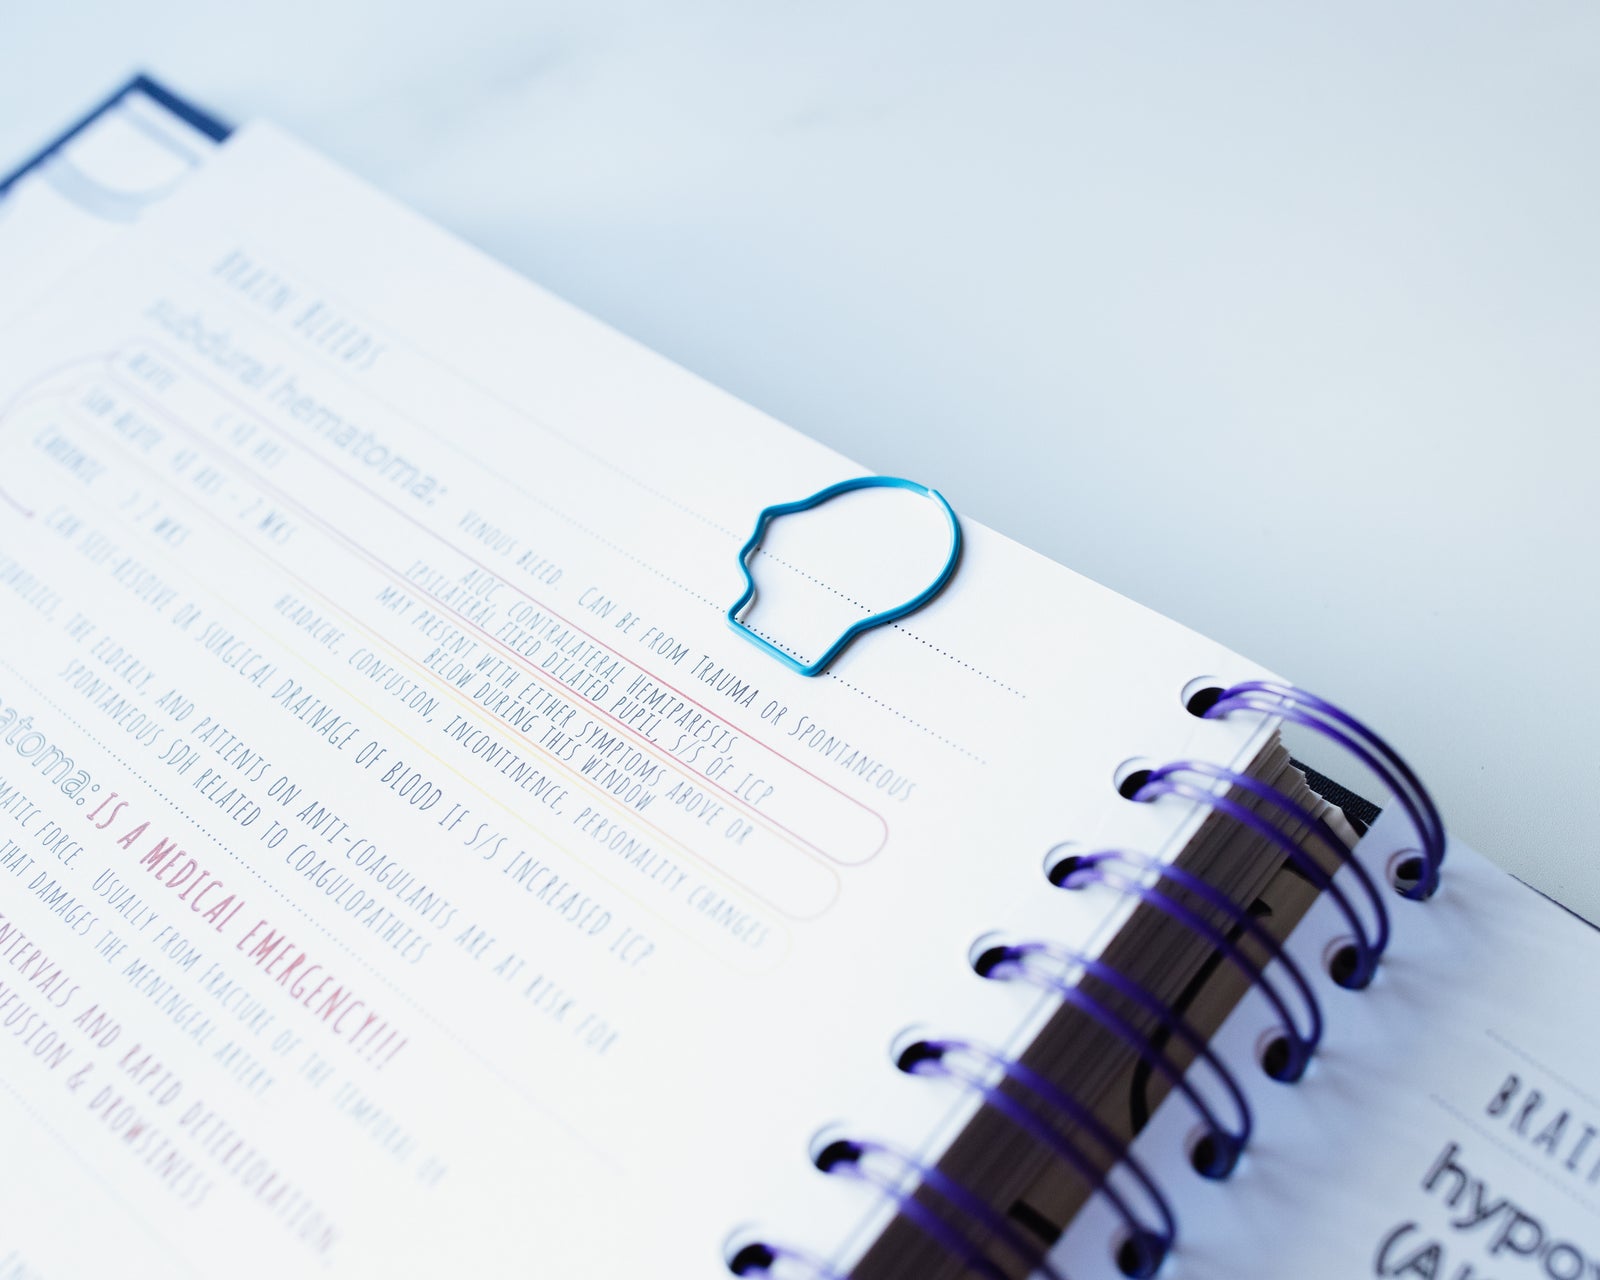 BRAIN BLEEDS
subdural hematoma: VENOUS BLEED. CAN BE FROM TRAUMA OR SPONTANEOUS
ACUTE < 48 HRS ALOC, CONTRALATERAL HEMIPARESIS,
IPSILATERAL FIXED DILATED PUPIL, S/S OF ICP
SUB-ACUTE 48 HRS - 2 WKS MAY PRESENT WITH EITHER SYMPTOMS ABOVE OR
BELOW DURING THIS WINDOW
CHRONIC > 2 WKS HEADACHE, CONFUSION, INCONTINENCE, PERSONALITY CHANGES
CAN SELF-RESOLVE OR SURGICAL DRAINAGE OF BLOOD IF S/S INCREASED ICP.
THE ELDERLY, AND PATIENTS ON ANTI-COAGULANTS ARE AT RISK FOR
SPONTANEOUS SDH RELATED TO COAGULOPATHIES
atoma: IS A MEDICAL EMERGENCY!!!
MATIC FORCE. USUALLY FROM FRACTURE OF THE TEMPORAL OR
THAT DAMAGES THE MENINGEAL ARTERY.
INTERVALS AND RAPID DETERIORATION,
NFUSION & DROWSINESS
BRAI
hypo
(A